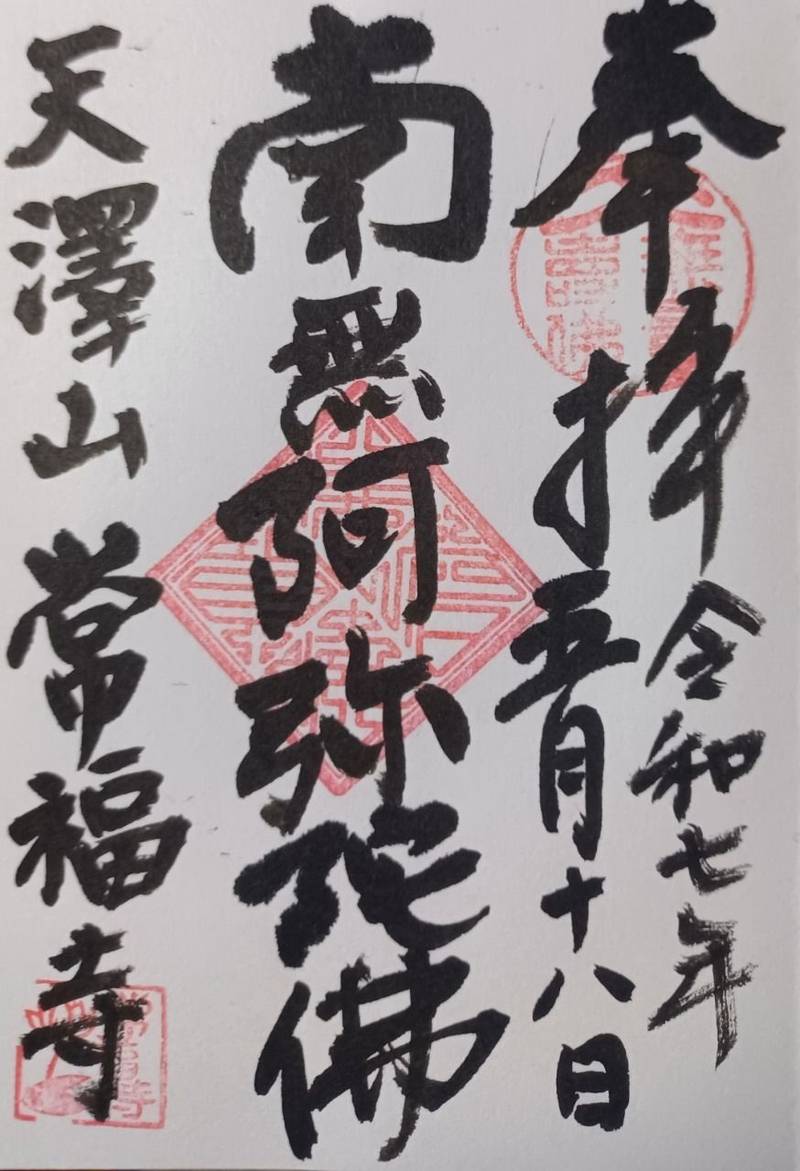 奉拝
令和七年
五月十八日
南無阿弥陀佛
天澤山 常福寺